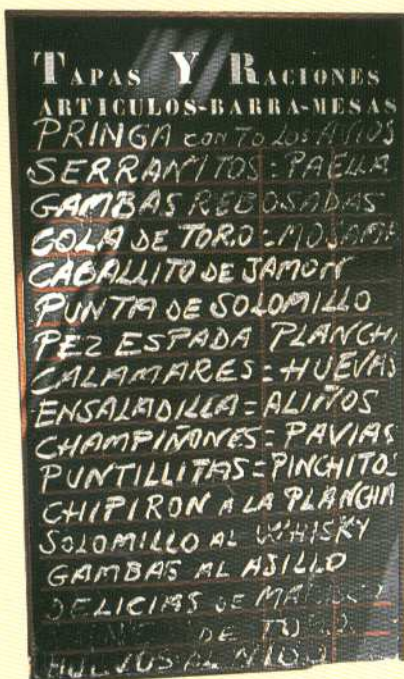 TAPAS Y RACIONES
ARTICULOS-BARRA-MESAS
PRINGA CON TO LOS AVIOS
SERRANITOS = PAELLA
GAMBAS REBOSADAS
COLA DE TORO =
CABALLITO DE JAMON
PUNTA DE SOLOMILLO
PEZ ESPADA PLANCH
CALAMARES = HUEVAS
ENSALADILLA = ALIÑOS
CHAMPIÑONES = PAVIAS
PUNTILLITAS = PINCHITOS
CHIPIRON A LA PLANCHA
SOLOMILLO AL WHISKY
GAMBAS AL AJILLO
DELICIAS DE
DE
HUEVOS AL NIDO